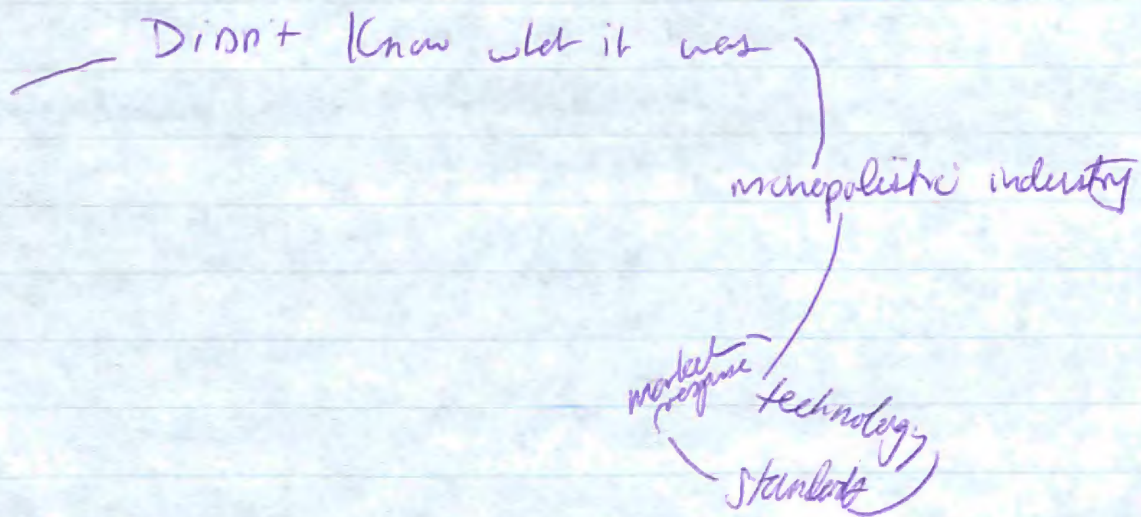 Didn't Know what it was
monopolistic industry
market
response
technology
standards